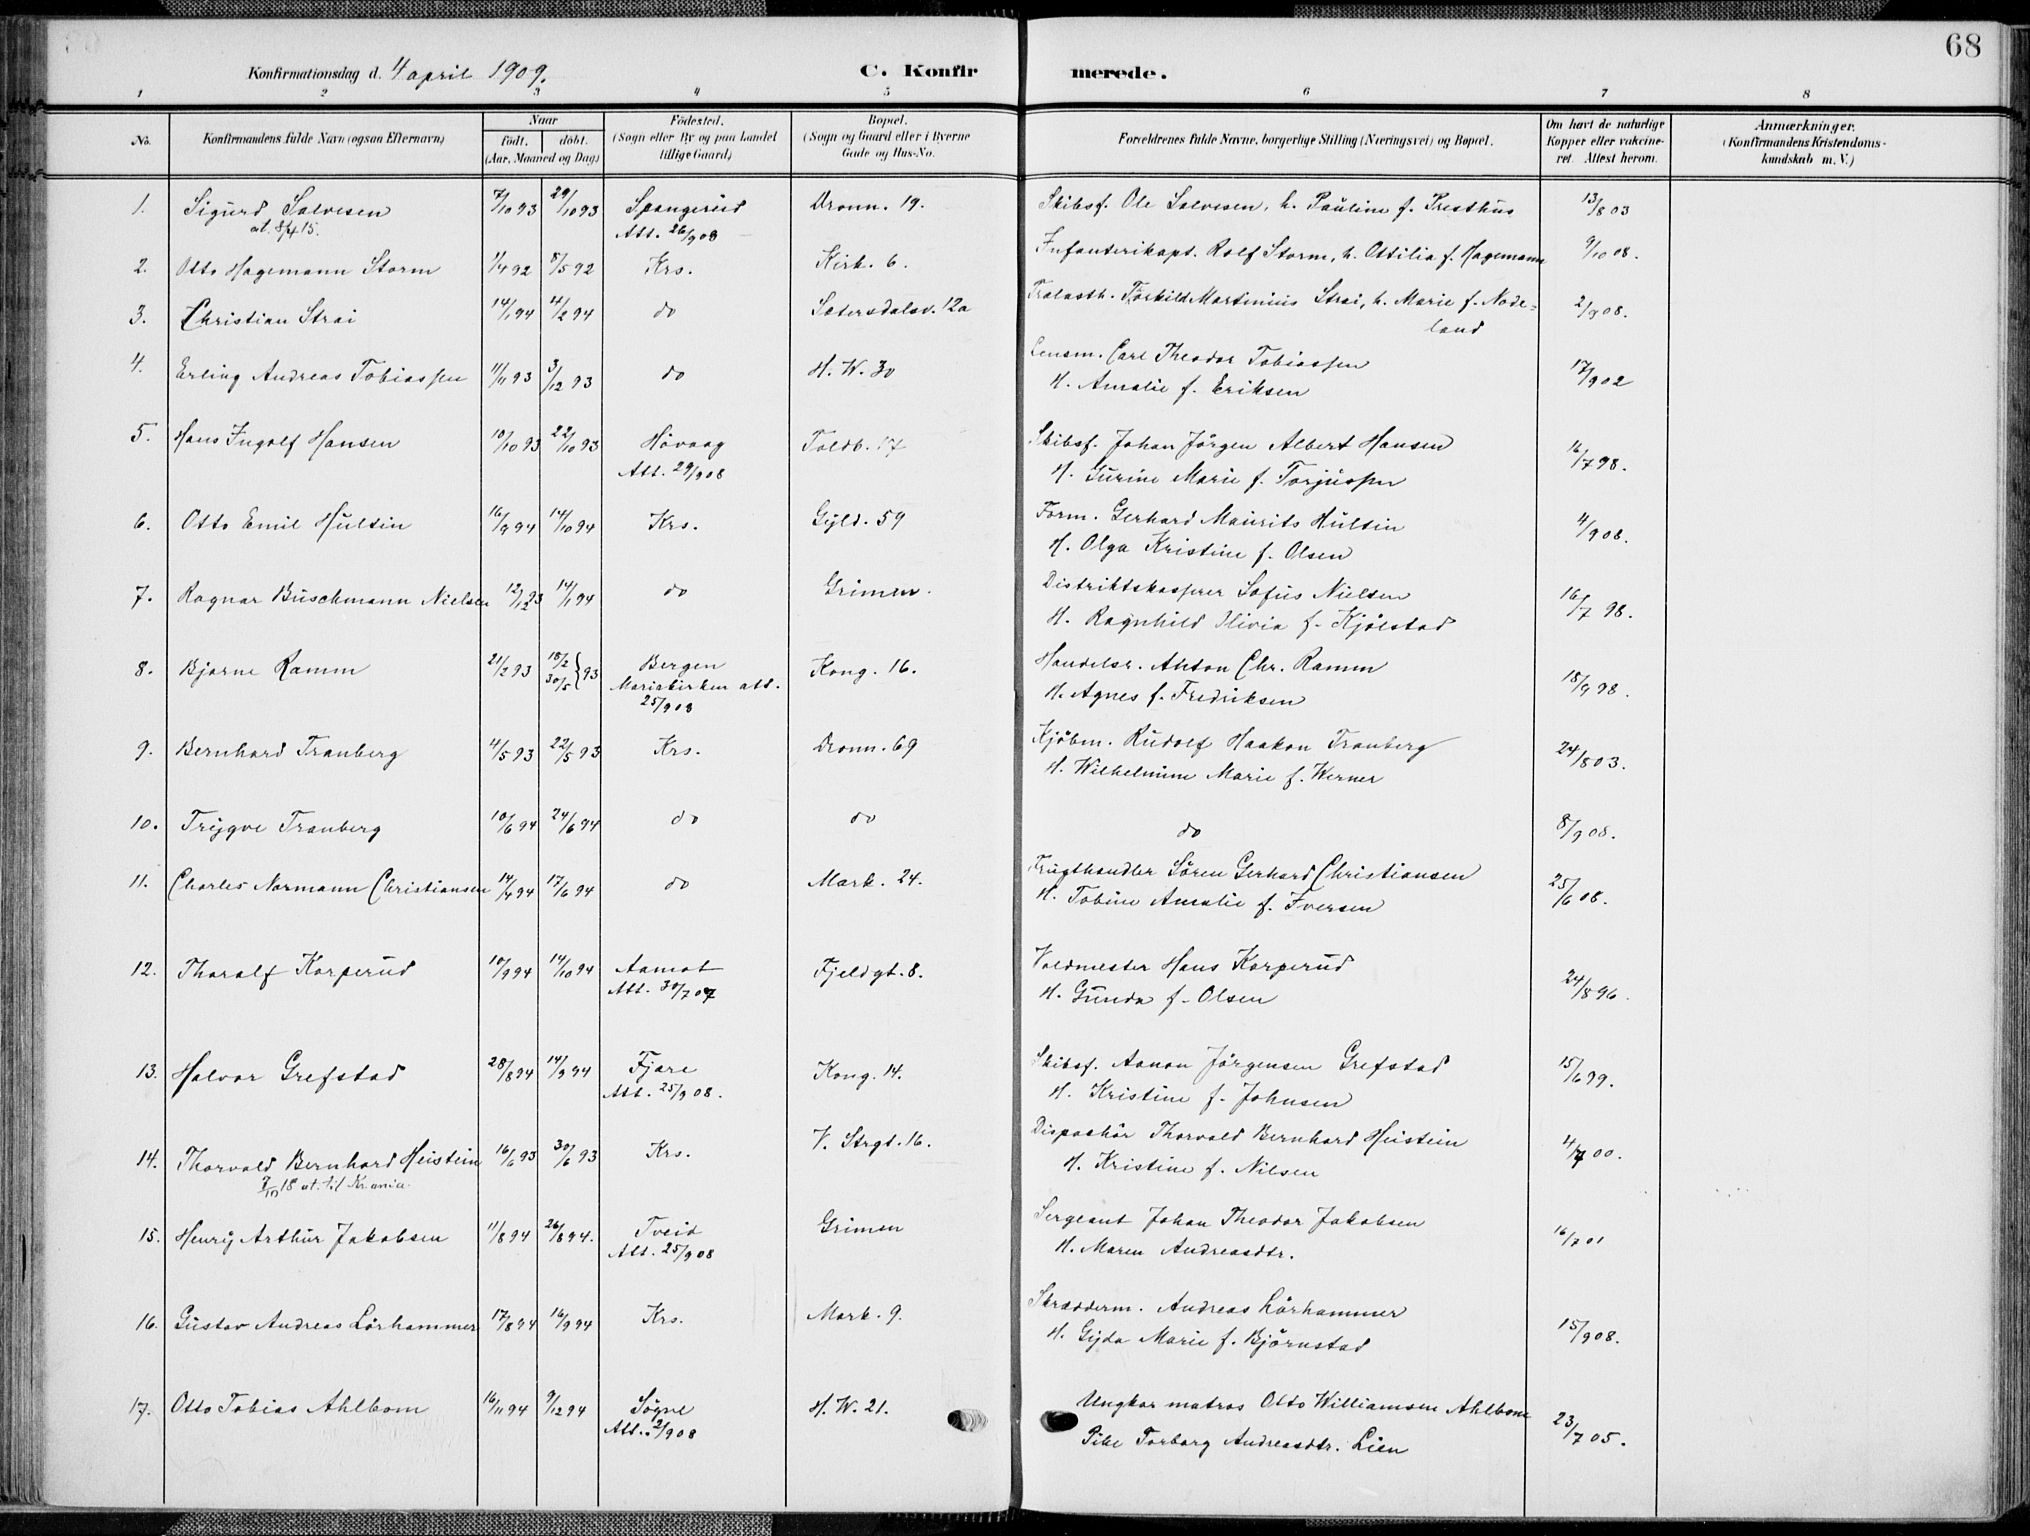 68
Konfirmationsdag d. 4 april 1909.
C. Konfirmerede.
1 2 3 4 5 6 7 8
No.
Konfirmandens fulde Navn (ogsaa Efternavn)
Naar
født. døbt.
(Aar, Maaned og Dag)
Fødested.
(Sogn eller By og paa Landet
tillige Gaard)
Bopæl.
(Sogn og Gaard eller i Byerne
Gade og Hus-No.
Forældrenes fulde Navne, borgerlige Stilling (Næringsvei) og Bopæl.
Om havt de naturlige
Kopper eller vakcine-
ret. Attest herom.
Anmærkninger.
(Konfirmandens Kristendoms-
kundskab m. V.)
1. Sigurd Salvesen 7/10 93 29/10 93 Spangereid Dronn. 19. Skibsf. Ole Salvesen, h. Pauline f. Presthus 13/8 03
at. 8/4 15. Att. 26/9 08
2. Otto Hagemann Storm 1/4 92 8/5 92 Krs. Kirk. 6. Infanterikapt. Rolf Storm, h. Ottilia f. Hagemann 9/10 08.
3. Christian Strai 14/1 94 4/2 94 do Sætersdalsv. 12a Trælasth. Torkild Martinius Strai, h. Marie f. Node- 2/9 08.
land
4. Erling Andreas Tobiassen 11/11 93 3/12 93 do H. W. 30 Lensm. Carl Theodor Tobiassen 17/9 02
H. Amalie f. Eriksen
5. Hans Ingolf Hansen 10/10 93 22/10 93 Høvaag Toldb. 17 Skibsf. Johan Jørgen Albert Hansen 16/7 98.
Att. 29/9 08 H. Gurine Marie f. Torjussen
6. Otto Emil Hultin 16/9 94 14/10 94 Krs. Gyld. 59 Form. Gerhard Maurits Hultin 4/9 08.
H. Olga Kristine f. Olsen
7. Ragnar Buschmann Nielsen 12/12 93 14/1 94 do Grimen. Distriktskasserer Sofus Nielsen 16/7 98.
H. Ragnhild Olivia f. Kjølstad
8. Bjarne Ramm 21/2 93 18/2 30/5 } 93 Bergen Kong. 16. Handelsr. Anton Chr. Ramm 18/9 98.
Mariakirken att. H. Agnes f. Fredriksen
25/9 08
9. Bernhard Tranberg 4/5 93 22/5 93 Krs. Dronn. 69 Kjøbm. Rudolf Haakon Tranberg 24/8 03.
H. Wilhelmine Marie f. Werner
10. Trygve Tranberg 10/6 94 24/6 94 do do do 8/9 08.
11. Charles Normann Christiansen 14/4 94 17/6 94 do Mark. 24. Frugthandler Søren Gerhard Christiansen 25/6 08.
H. Tobine Amalie f. Iversen
12. Thoralf Korperud 10/9 94 14/10 94 Aamot Fjeldgt. 8. Voldmester Hans Korperud 24/8 96.
Att. 30/7 07 H. Gunda f. Olsen
13. Halvor Grefstad 28/8 94 14/9 94 Fjære Kong. 14. Skibsf. Aanon Jørgensen Grefstad 15/6 99.
Att. 25/9 08. H. Kristine f. Johnsen
14. Thorvald Bernhard Heistein 16/6 93 30/6 93 Krs. V. Strgt. 16. Dispachør Thorvald Bernhard Heistein 4/7 00.
7/10 18 at. til Kr.ania. H. Kristine f. Nilsen
15. Henry Arthur Jakobsen 11/8 94 26/8 94. Tveid Grimen Sergeant Johan Theodor Jakobsen 16/7 01
Att. 25/9 08 H. Maren Andreasdtr.
16. Gustav Andreas Lørhammer 17/8 94 16/9 94 Krs. Mark. 9. Skrædderm. Andreas Lørhammer 15/9 08.
H. Gyda Marie f. Bjørnstad
17. Otto Tobias Ahlbom 16/11 94 9/12 94 Søgne H. W. 21. Ungkar matros Otto Williamsen Ahlbom 23/7 05.
Att. 2/9 08 Pike Torborg Andreasdtr. Lien